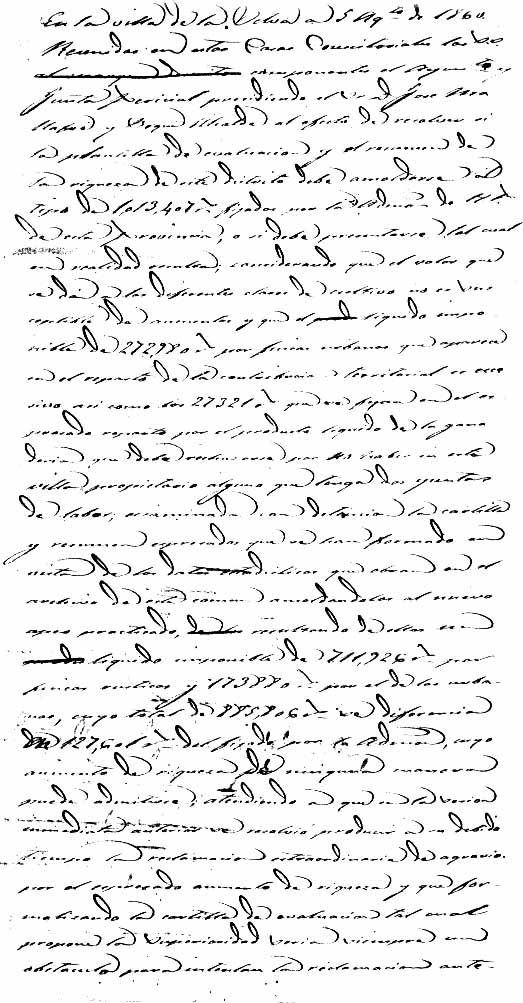 En la villa de la Ulera a 5 Ag.to de 1860.
Reunidos en estas Casas Consistoriales los S.S.
componentes el Ayun.to y
Junta Pericial presidiendo el Sr. D. Jose
y Alcalde al efecto de resolver si
la plantilla de evaluacion y el resumen de
la riqueza de este distrito debe amoldarse al
tipo de 1.013,407 r.s fijados por la Admon. de H.
de esta Provincia, o si debe presentarse tal cual
en realidad resulta, considerando que el valor que
se da a las diferentes clases de cultivo no es sus
ceptible de aumentos y que el liquido impo
nible de 272,980 r.s por fincas urbanas que aparece
en el reparto de la contribucion territorial es ece
sivo asi como los 27321 r.s que se fijan en el es
presado reparto por el producto liquido de la gana
deria que debe reducirse por no haber en esta
villa propietario alguno que tenga dos yuntas
de labor, examinada con detencion la cartilla
y resumen espresados que se han formado en
vista de los datos que obran en el
archivo de este comun amoldandolos al nuevo
apeo practicado, resultando de ellos un
liquido imponible de 711,926 r.s por
fincas rusticas y 173880 r.s por el de las urba-
nas, cuyo total de 885806 r.s se diferencia
en 127601 r.s del fijado por la Admon, cuyo
aumento de riqueza de ninguna manera
puede admitirse; atendiendo a que en la sesion
inmediata anterior se resolvió producir a su debido
tiempo la reclamacion extraordinaria de agravio
por el espresado aumento de riqueza y que for-
malizando la cartilla de evaluacion tal cual
propone la Superioridad seria siempre un
obstaculo para entablar la reclamacion ante-